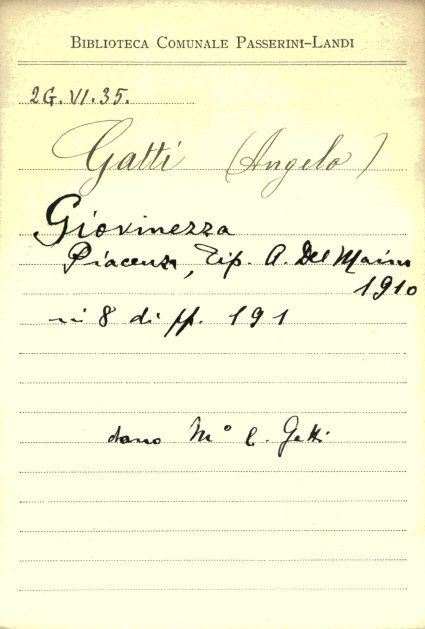 BIBLIOTECA COMUNALE PASSERINI-LANDI
2G.VI.35.
Gatti (Angelo)
Giovinezza
Piacenza, Tip. A. Del Maino
1910
in 8 di pp. 191
dono M° C. Gatti